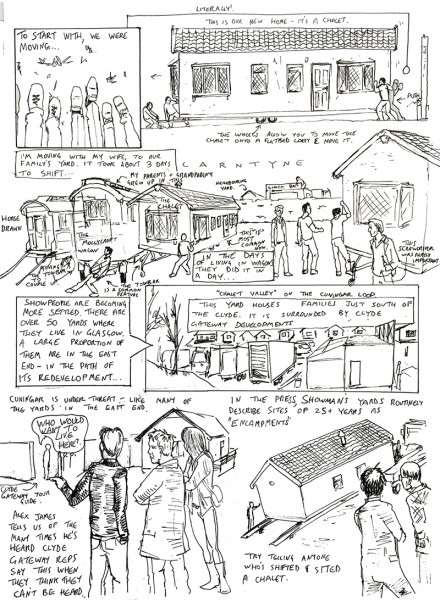 LITERALLY!
TO START WITH, WE WERE
MOVING...
THIS IS OUR NEW HOME - IT'S A CHALET.
PUSH
THE WHEELS ALLOW YOU TO MOVE THE
CHALET ONTO A FLATBED LORRY & MOVE IT.
I'M MOVING WITH MY WIFE, TO OUR
FAMILY'S YARD. IT TOOK ABOUT 3 DAYS
TO SHIFT...
CARNTYNE
MY PARENTS + GRANDPARENTS
GREW UP IN THIS
NEIGHBOURING
YARD.
HORSE
DRAWN
THE
MOLLYCROFT
WAGON
THE
CHALET
"THIS" IS
MOST
COMMON
NOW
MOVING
THE
TO
COUPLE
THE TOWBAR
IS A COMMON
FEATURE
IN THE DAYS
OF LIVING IN WAGONS
THEY DID IT IN
A DAY...
THIS
SCREWDRIVER
WAS REALLY
IMPORTANT
SHOWPEOPLE ARE BECOMING
MORE SETTLED. THERE ARE
OVER 50 YARDS WHERE
THEY LIVE IN GLASGOW.
A LARGE PROPORTION OF
THEM ARE IN THE EAST
END - IN THE PATH OF
ITS REDEVELOPMENT...
"CHALET VALLEY" ON THE CUNINGAR LOOP
THIS YARD HOUSES FAMILIES JUST SOUTH OF
THE CLYDE. IT IS SURROUNDED BY CLYDE
GATEWAY DEVELOPMENTS
CUNINGAR IS UNDER THREAT - LIKE MANY OF
THE YARDS IN THE EAST END.
WHO WOULD
WANT TO
LIVE
HERE?
CLYDE
GATEWAY TOUR
GUIDE.
ALEX JAMES
TELLS US OF THE
MANY TIMES HE'S
HEARD CLYDE
GATEWAY REPS
SAY THIS WHEN
THEY THINK THEY
CAN'T BE HEARD.
IN THE PRESS SHOWMAN'S YARDS ROUTINELY
DESCRIBE SITES OF 25+ YEARS AS
"ENCAMPMENTS"
TRY TELLING ANYONE
WHO'S SHIFTED & SITED
A CHALET.